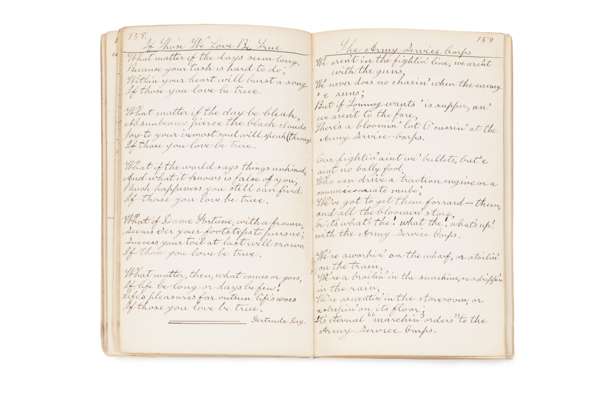 158.
If Those We Love Be True
What matter if the days seem long,
Because your task is hard to do,
Within your heart will burst a song
If those you love be true.
What matter if the day be bleak,
As sunbeams pierce the black clouds
through
So to your inmost soul will speak
If those you love be true.
What if the world says things unkind,
And what it knows is false of you,
Much happiness you still can find
If those you love be true.
What if Dame Fortune, with a frown,
Seems o'er your footsteps to pursue;
Success your toil at last will crown
If those you love be true.
What matter, then, what comes or goes,
If life be long or days be few!
Life's pleasures far outrun life's woes
If those you love be true.
Gertrude
159
The Army Service Corps
We aren't in the fightin' line, we aren't
with the guns,
We never does no chasin' when the enemy
'e runs;
But if Tommy wants 'is supper, an'
we aren't to the fore,
There's a bloomin' lot o' cussin' at the
Army Service Corps.
Our fightin' aint wi' bullets, but 'e
aint no bally fool,
Who can drive a traction engine or a
mule;
We've got to get them forrard – them,
and all the bloomin' store,
Or its what the! what the!, what's up!
with the Army Service Corps.
We're a workin' on the wharf, or a
on the train,
We're a broilin' in the sunshine, or a drippin'
in the rain,
We're a sweatin' in the storeroom, or
a sleepin' on its floor,
Its eternal "marchin' orders" to the
Army Service Corps.